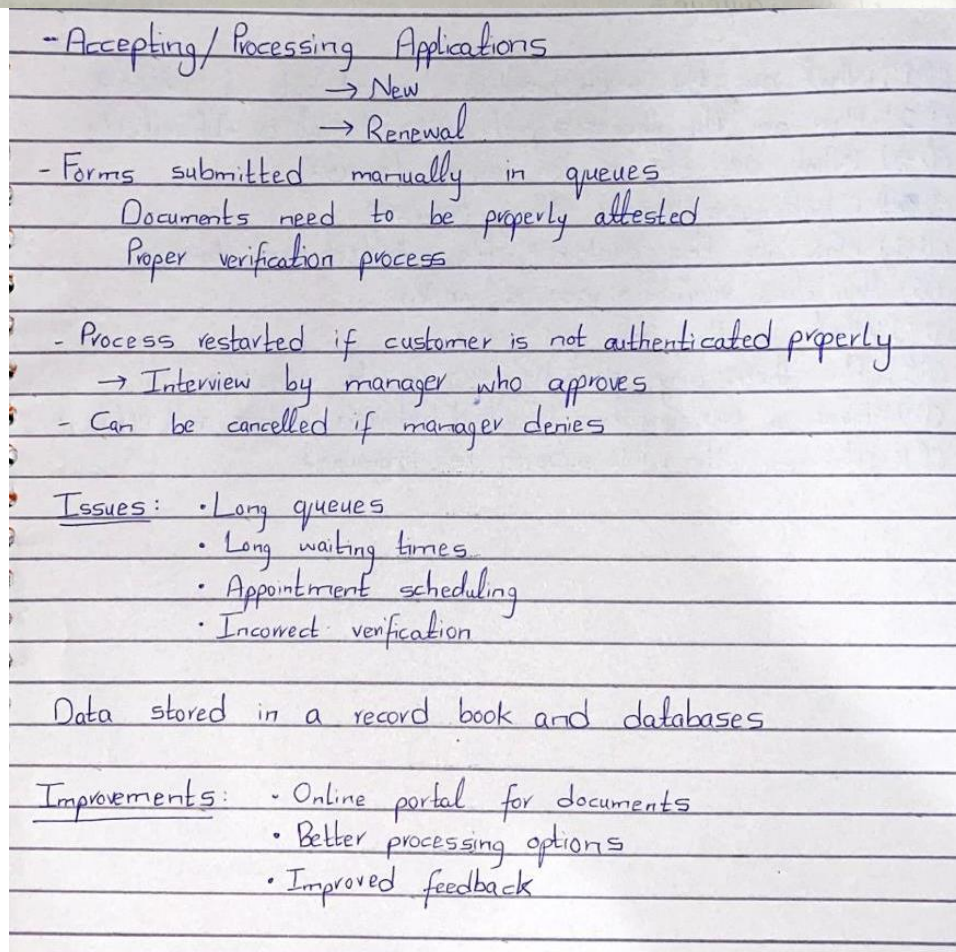 - Accepting/Processing Applications
→ New
→ Renewal
- Forms submitted manually in queues
Documents need to be properly attested
Proper verification process
- Process restarted if customer is not authenticated properly
→ Interview by manager who approves
- Can be cancelled if manager denies
Issues: • Long queues
• Long waiting times
• Appointment scheduling
• Incorrect verification
Data stored in a record book and databases
Improvements: • Online portal for documents
• Better processing options
• Improved feedback